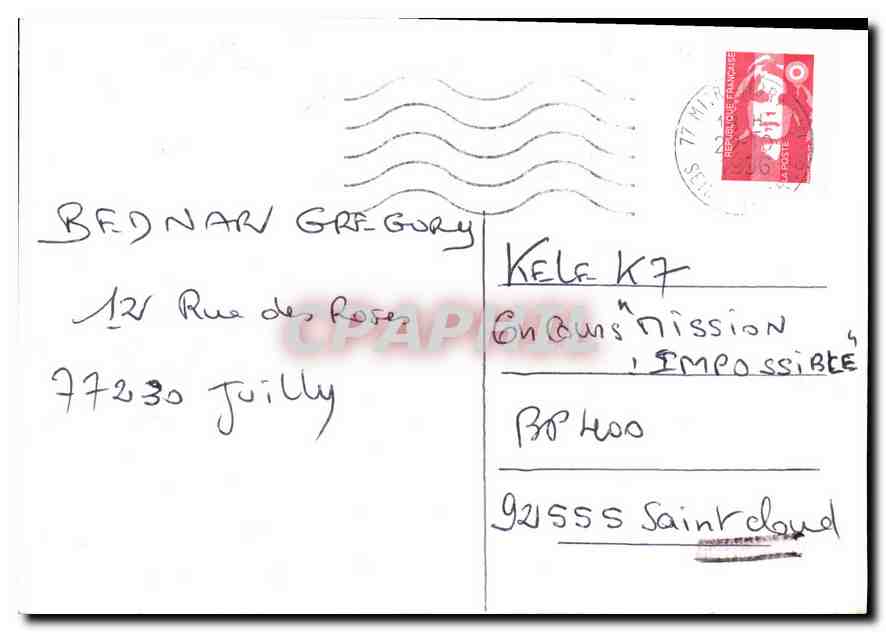 BEDNAR GREGORY
12 Rue des Roses
77230 Juilly
KELE K7
Concours "MISSION
IMPOSSIBLE"
BP 400
92555 Saint cloud
REPUBLIQUE FRANÇAISE
LA POSTE
77 MI
SEI
CPAPHIL